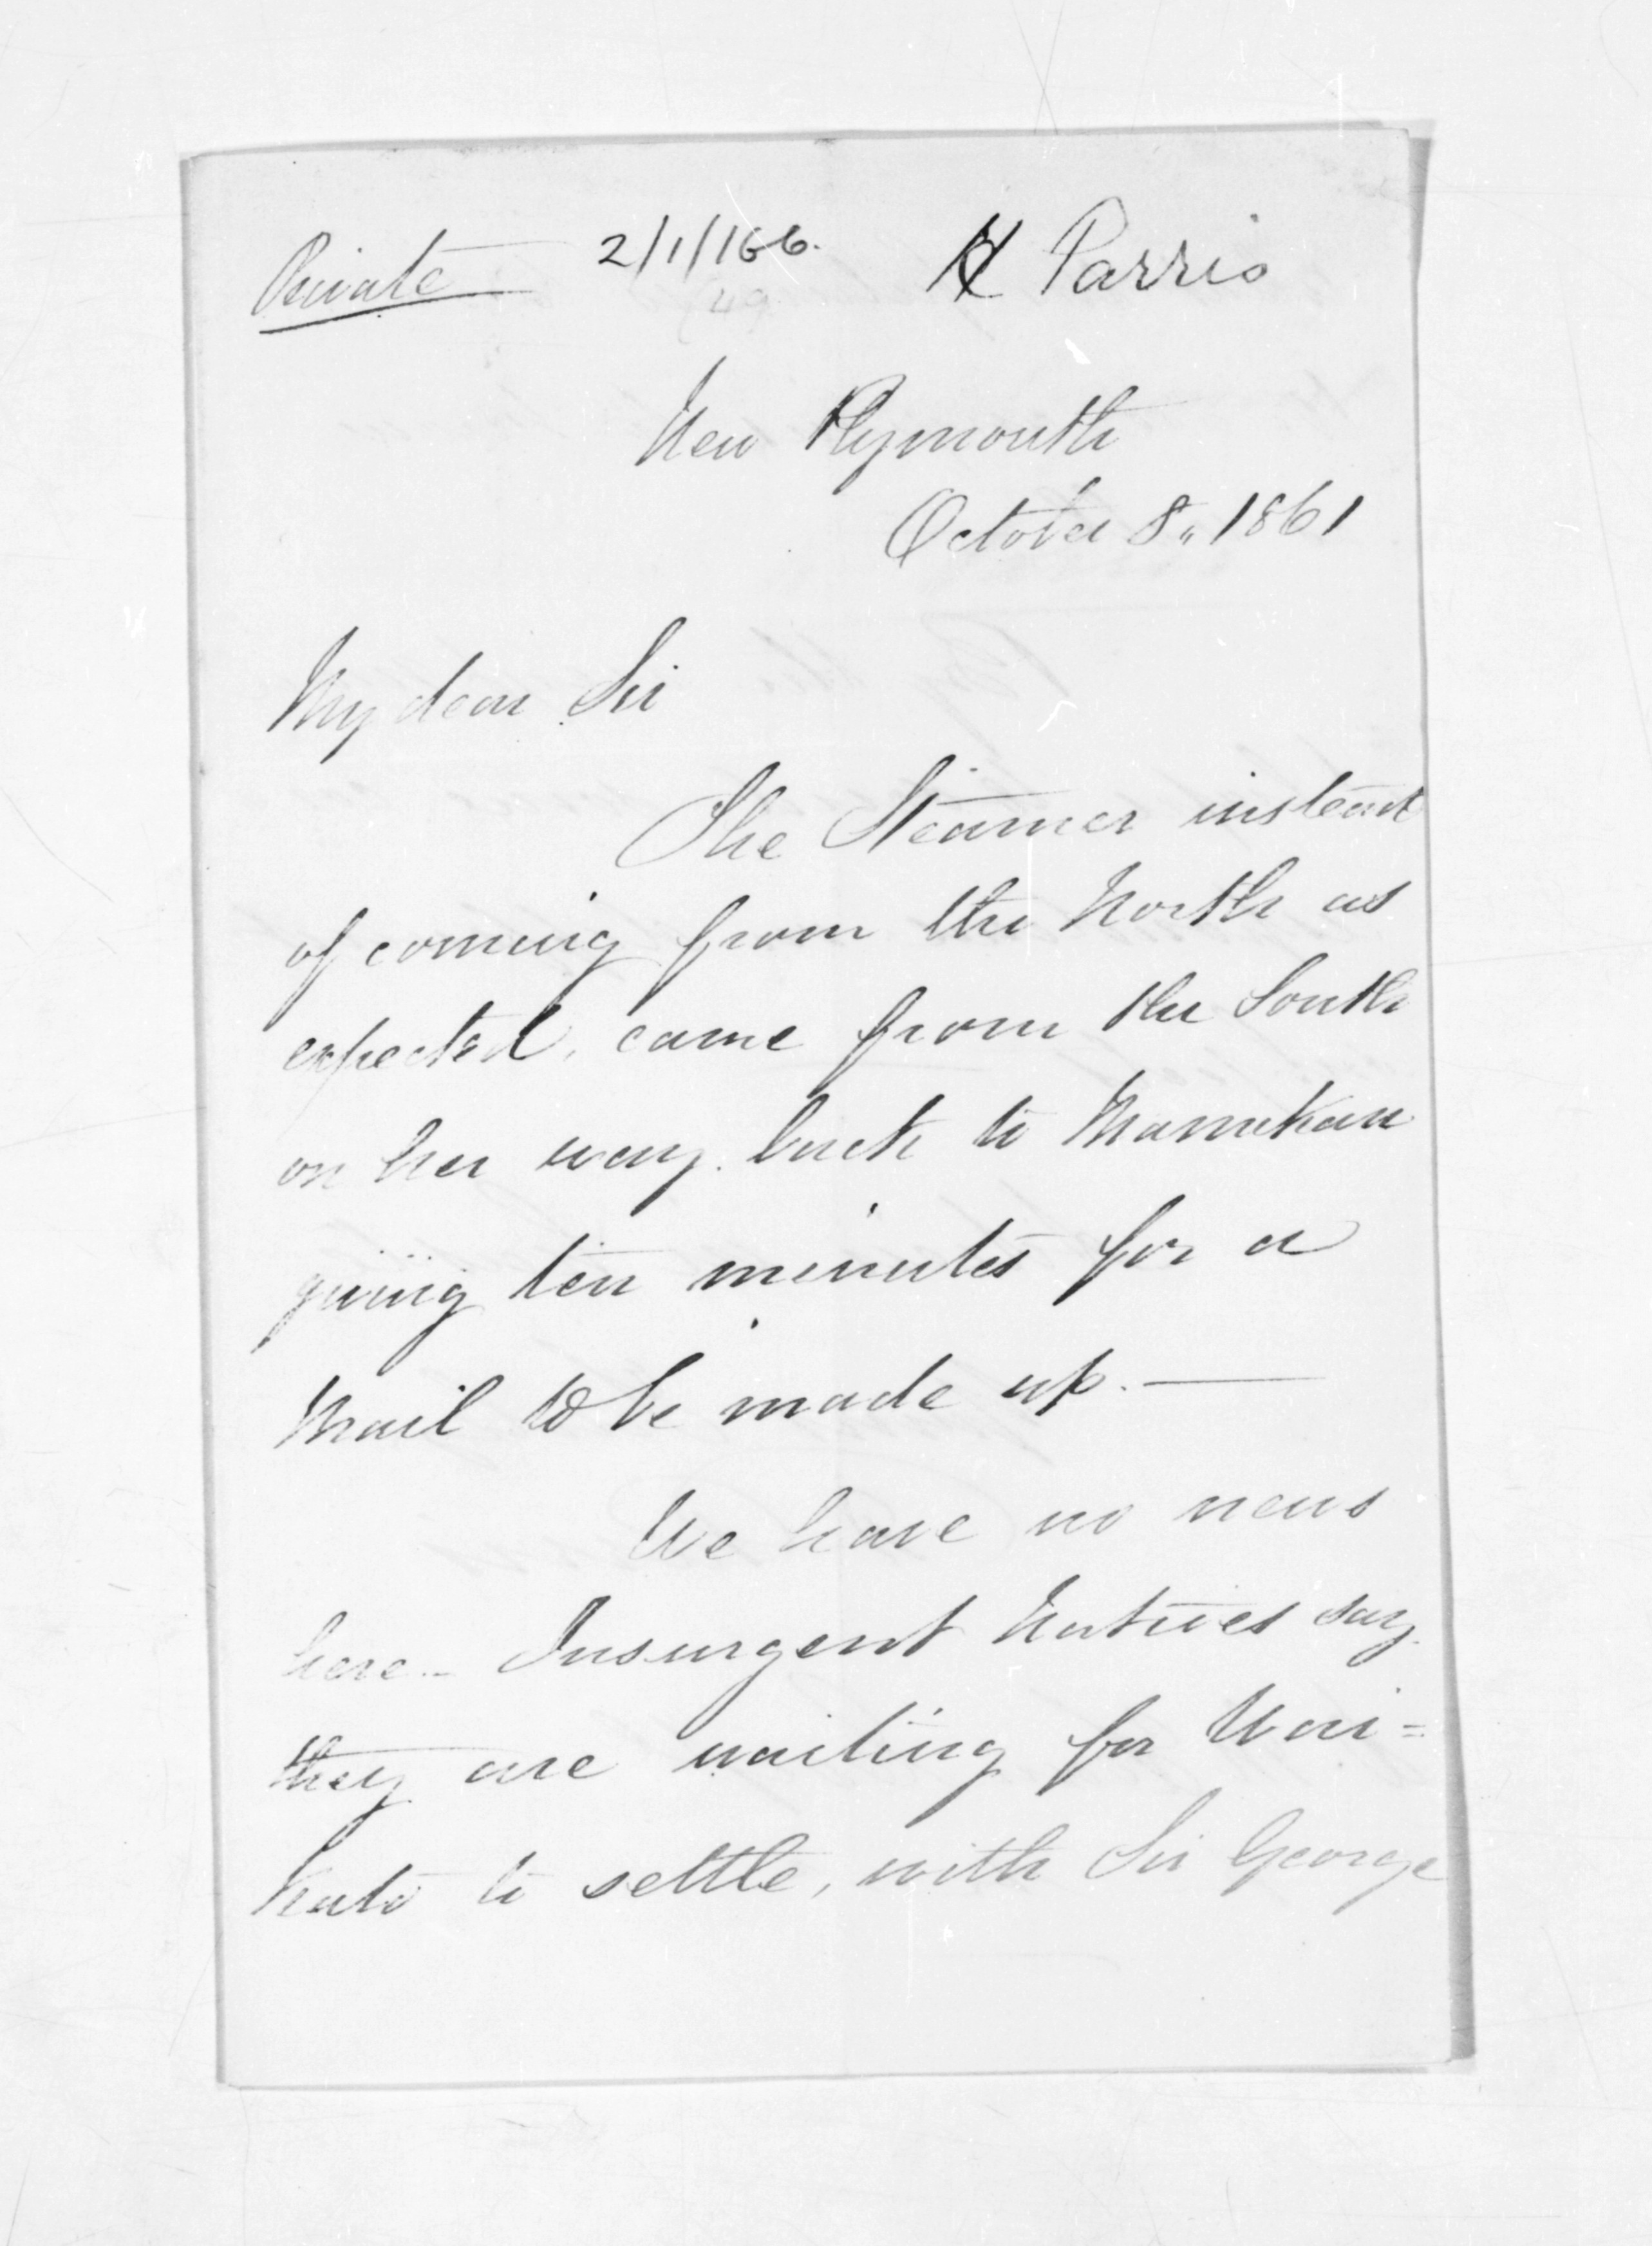 Private 2/1/166. H Parris
New Plymouth
October 8,, 1861
My dear Sir
The Steamer instead
of coming from the North as
expected, came from the South
on her way back to Manukau
giving ten minutes for a
Mail to be made up. —
We have no news
here — Insurgent Natives say
they are waiting for Wai=
kato to settle, with Sir George